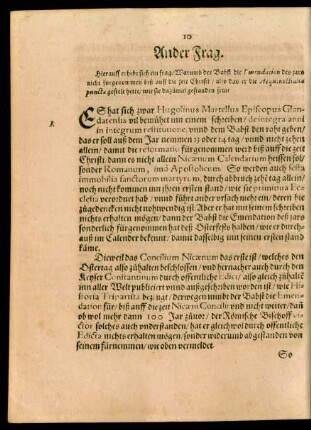 10
Ander Frag.
Hierauff erhebt sich ein frag / Warumb der Babst die Emendation des jars
nicht fürgenommen biß auff die zeit Christi / also das er die Aequinoctialia
puncta gestelt hette / wie sie dazumal gestanden sein
ES hat sich zwar Hugolinus Martellus Episcopus Glan-
datensis vil bemühet inn einem schreiben / de integra anni
in integrum restitutione, vnnd dem Babst den raht geben /
das er soll auß dem Jar nemmen 13 oder 14 tag / vnd nicht nur 10,
darumb / damit die reformatio fürgenommen werd biß auff die zeit
Christi: dann es nicht allein Nicænum Calendarium heissen sol /
sonder Romanum, imò Apostolicum. So werden auch festa
immobilia sanctorum martyrum, durch abbruch zehen tag / dannoch
noch nicht kommen inn jhren ersten stand / wie sie primitiua Ec-
clesia verordnet hab / vnnd führt andere vrsach mehr ein / deren hie
zugedencken nicht nohtwendig ist. Aber er hat mit seinem schreiben
nichts erhalten mögen / dann der Babst die Emendation deß jars
sonderlich fürgenommen hat deß Osterfests halben / wie er durch-
auß im Calender bekennt / damit dasselbig inn seinen ersten stand
käme.
Dieweil das Concilium Nicænum das erste ist / welches den
Ostertag also zühalten beschlossen / vnd hernacher auch durch den
Keyser Constantinum durch offentliche Edict / also gleich zühalten
inn aller Welt publiciert vnnd außgeschriben worden ist / wie Hi-
storia Tripartita bezeugt / derwegen nimbt der Babst die Emen-
dation für / biß auff die zeit Nicæni Concilii vnd nicht weiter / dañ
ob wol mehr dann 100 Jar züuor / der Römische Bischoff Vi-
ctor solches auch vnderstanden / hat er gleichwol durch offentliche
Edicta nichts erhalten mögen / sonder widerumb abgestanden von
seinem fürnemmen / wie oben vermeldet.
So